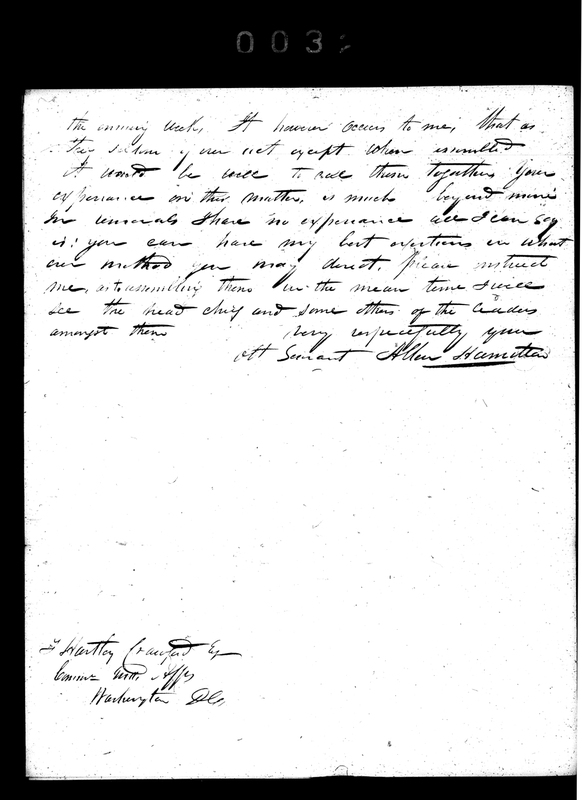 003
the ensuing week. It however occurs to me, that as
they seldom if ever act except when assembled
it would be well to call them together. Your
experience in this matter, is much beyond mine
In removals I have no experience all I can say
is: you can have my best exertions in what
ever method you may direct, please instruct
me, as to assembling them in the mean time I will
see the head chief and some others of the leaders
amongst them very respectfully your
obt Servant Allen Hamilton
T Hartley Crawford Esq
Commr Indn Affrs
Washington D Ca